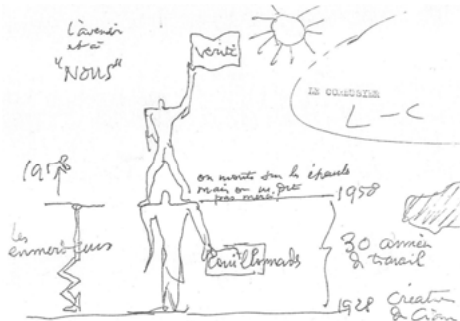 l'avenir
est à
"NOUS"
vérité
LE CORBUSIER
L-C
on monte sur les épaules
mais on ne dit
pas merci!
1958
Les
30 années
de travail
1928 Création
de Ciam